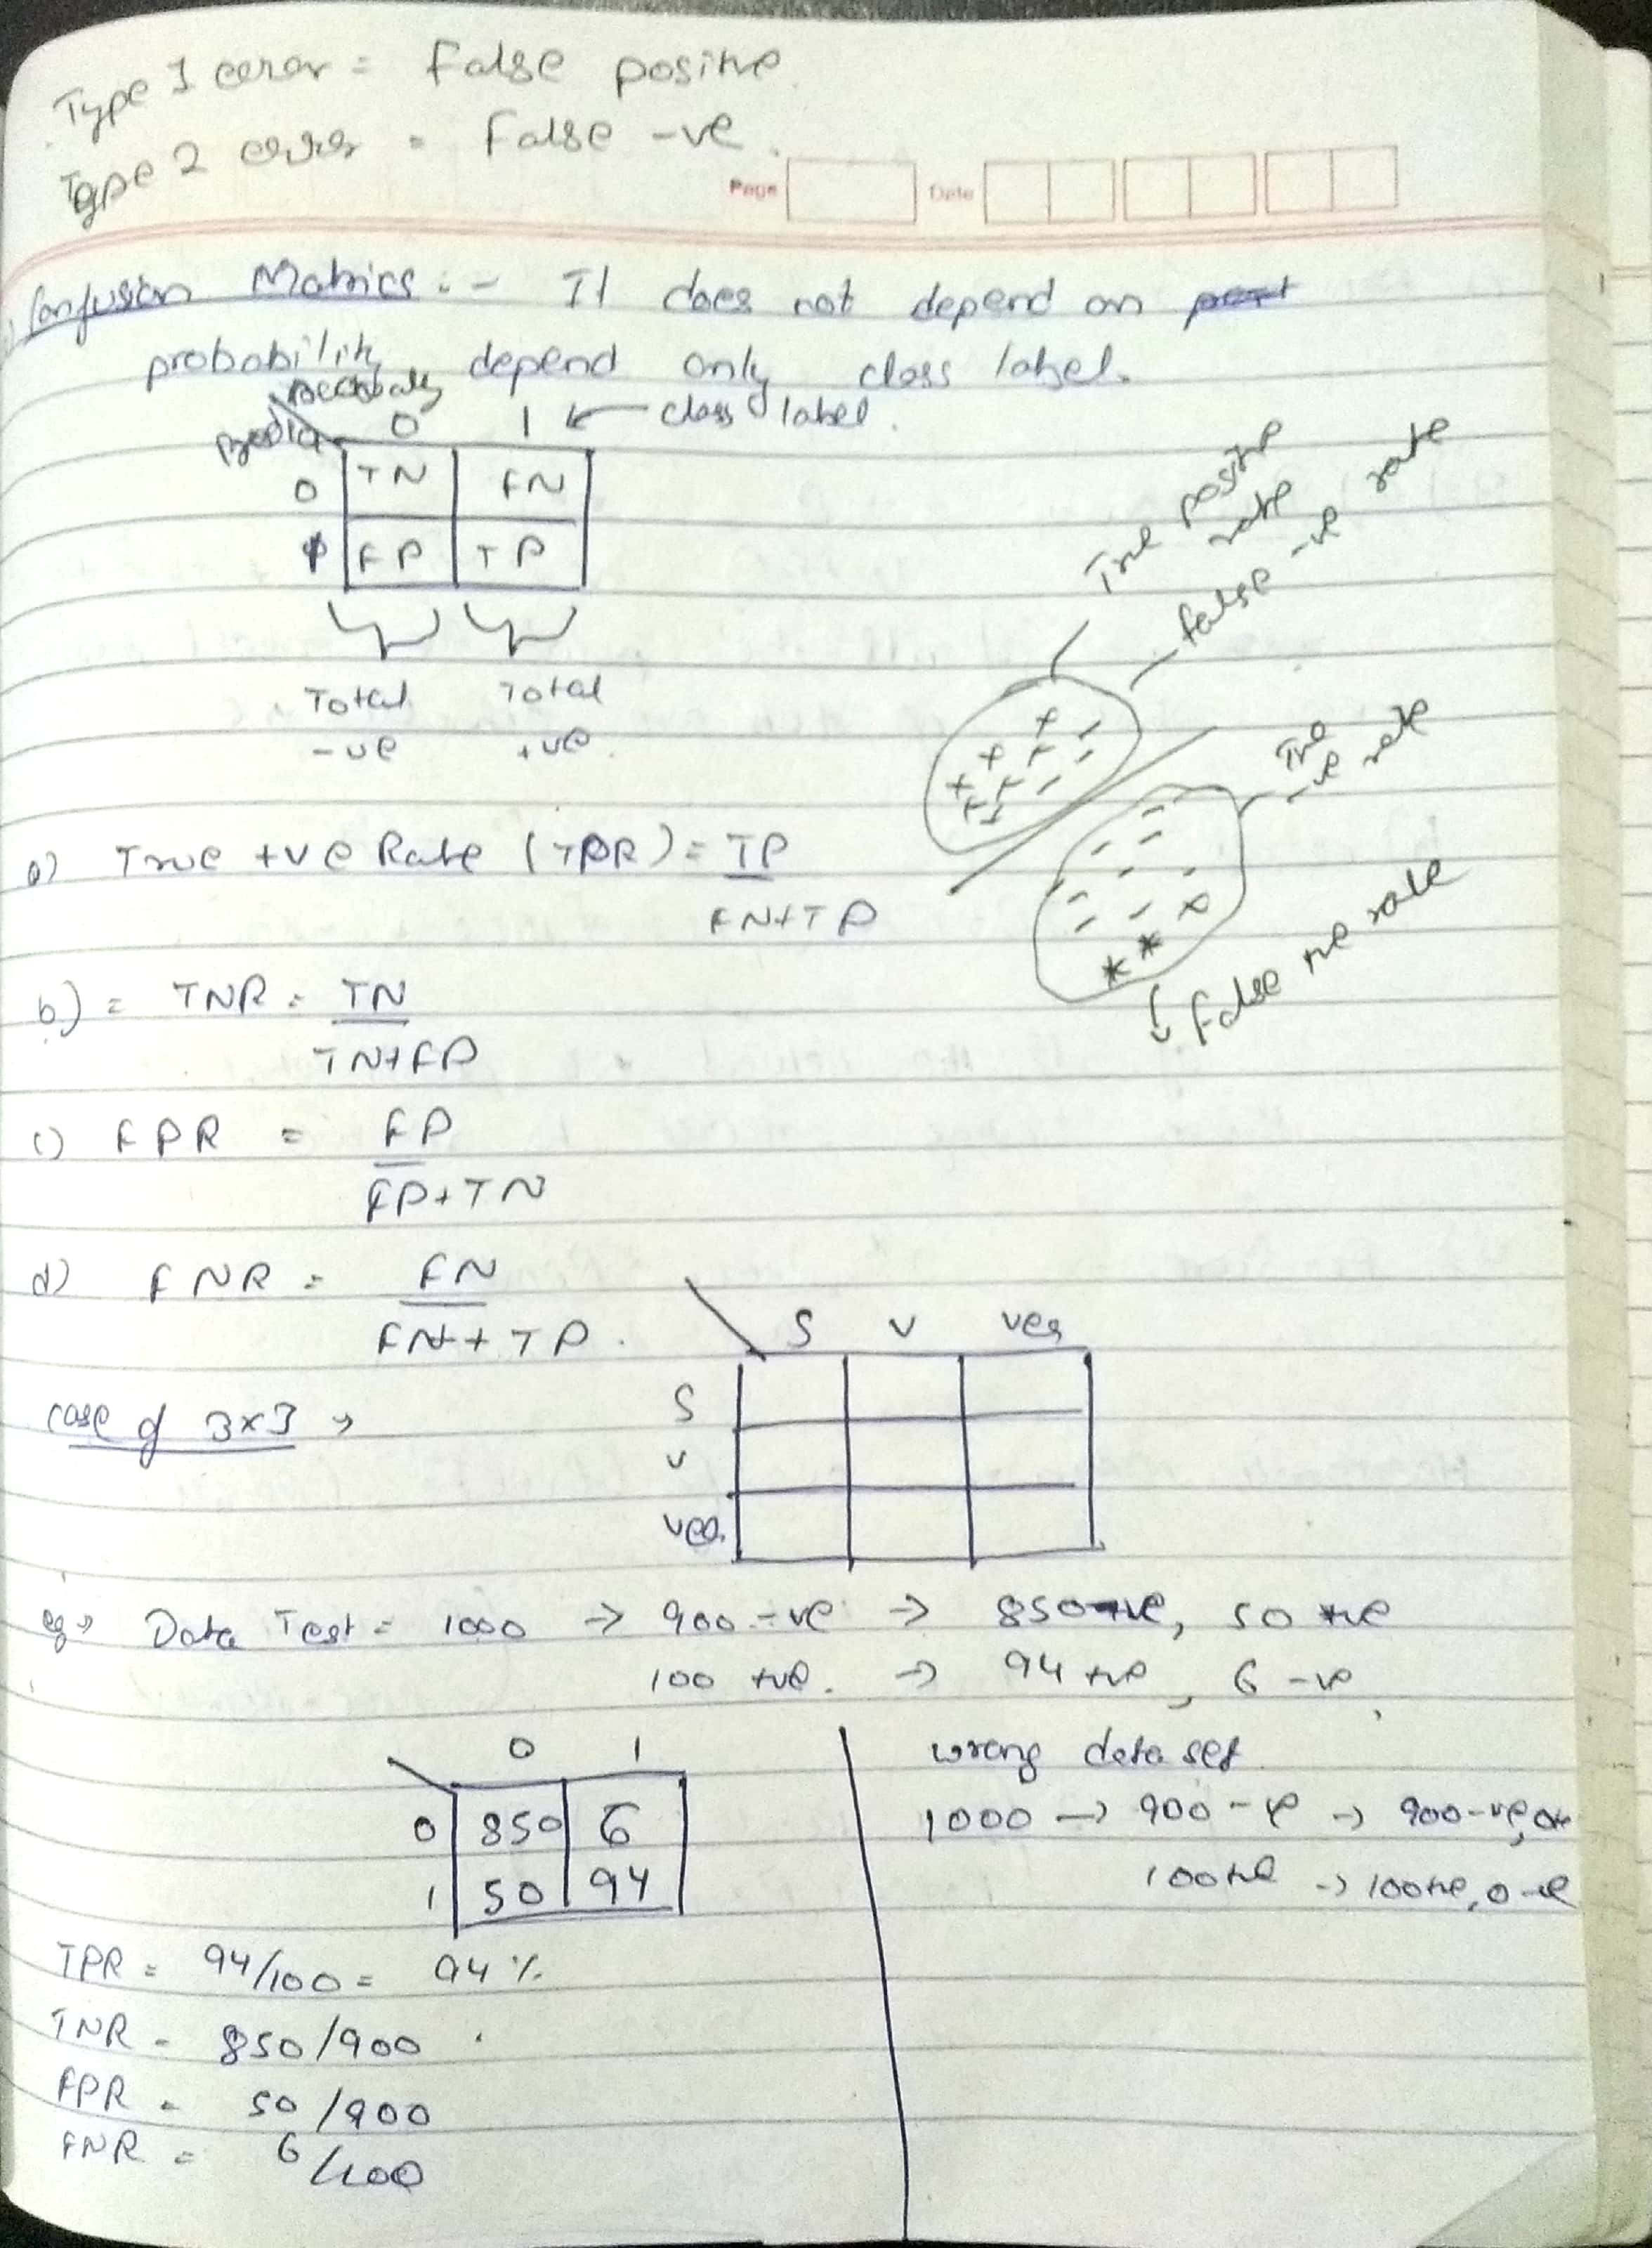 Type 1 error = False positive.
Type 2 error = False -ve.
Page Date
Confusion Matrics :- It does not depend on
probability depend only class label.
0 1 ← class label.
0 TN FN
1 FP TP
Total Total
-ve +ve
True positive
rate
false -ve rate
True
-ve rate
False +ve rate
a) True +ve Rate (TPR) = TP
FN+TP
b) = TNR = TN
TN+FP
c) FPR = FP
FP+TN
d) FNR = FN
FN+TP.
S V Ves
case of 3x3 →
S
V
Ves.
eg→ Data Test = 1000 → 900 -ve → 850 -ve, 50 +ve
100 +ve. → 94 +ve, 6 -ve
0 1
0 850 6
1 50 94
TPR = 94/100 = 94 %.
TNR = 850/900
FPR = 50/900
FNR = 6/100
wrong data set
1000 → 900 -ve → 900 -ve,
100 +ve → 100 +ve, 0 -ve